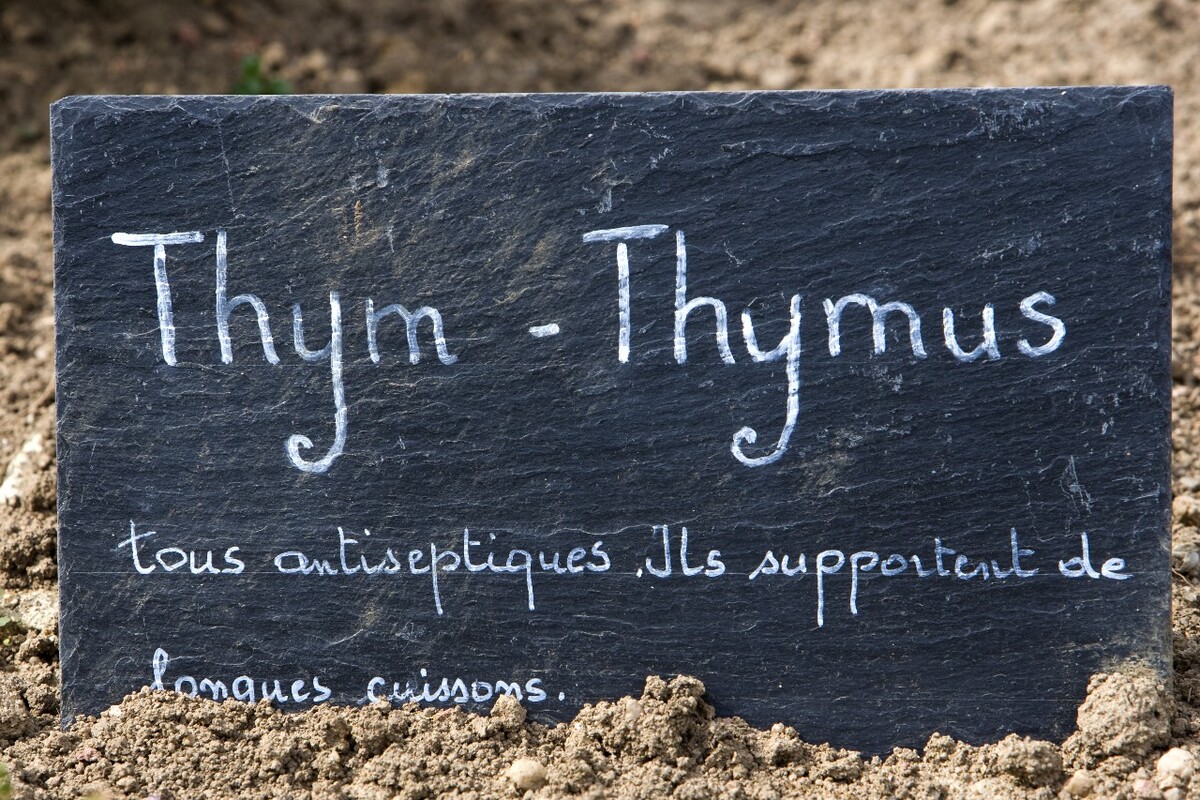 Thym - Thymus
tous antiseptiques. Ils supportent de
longues cuissons.